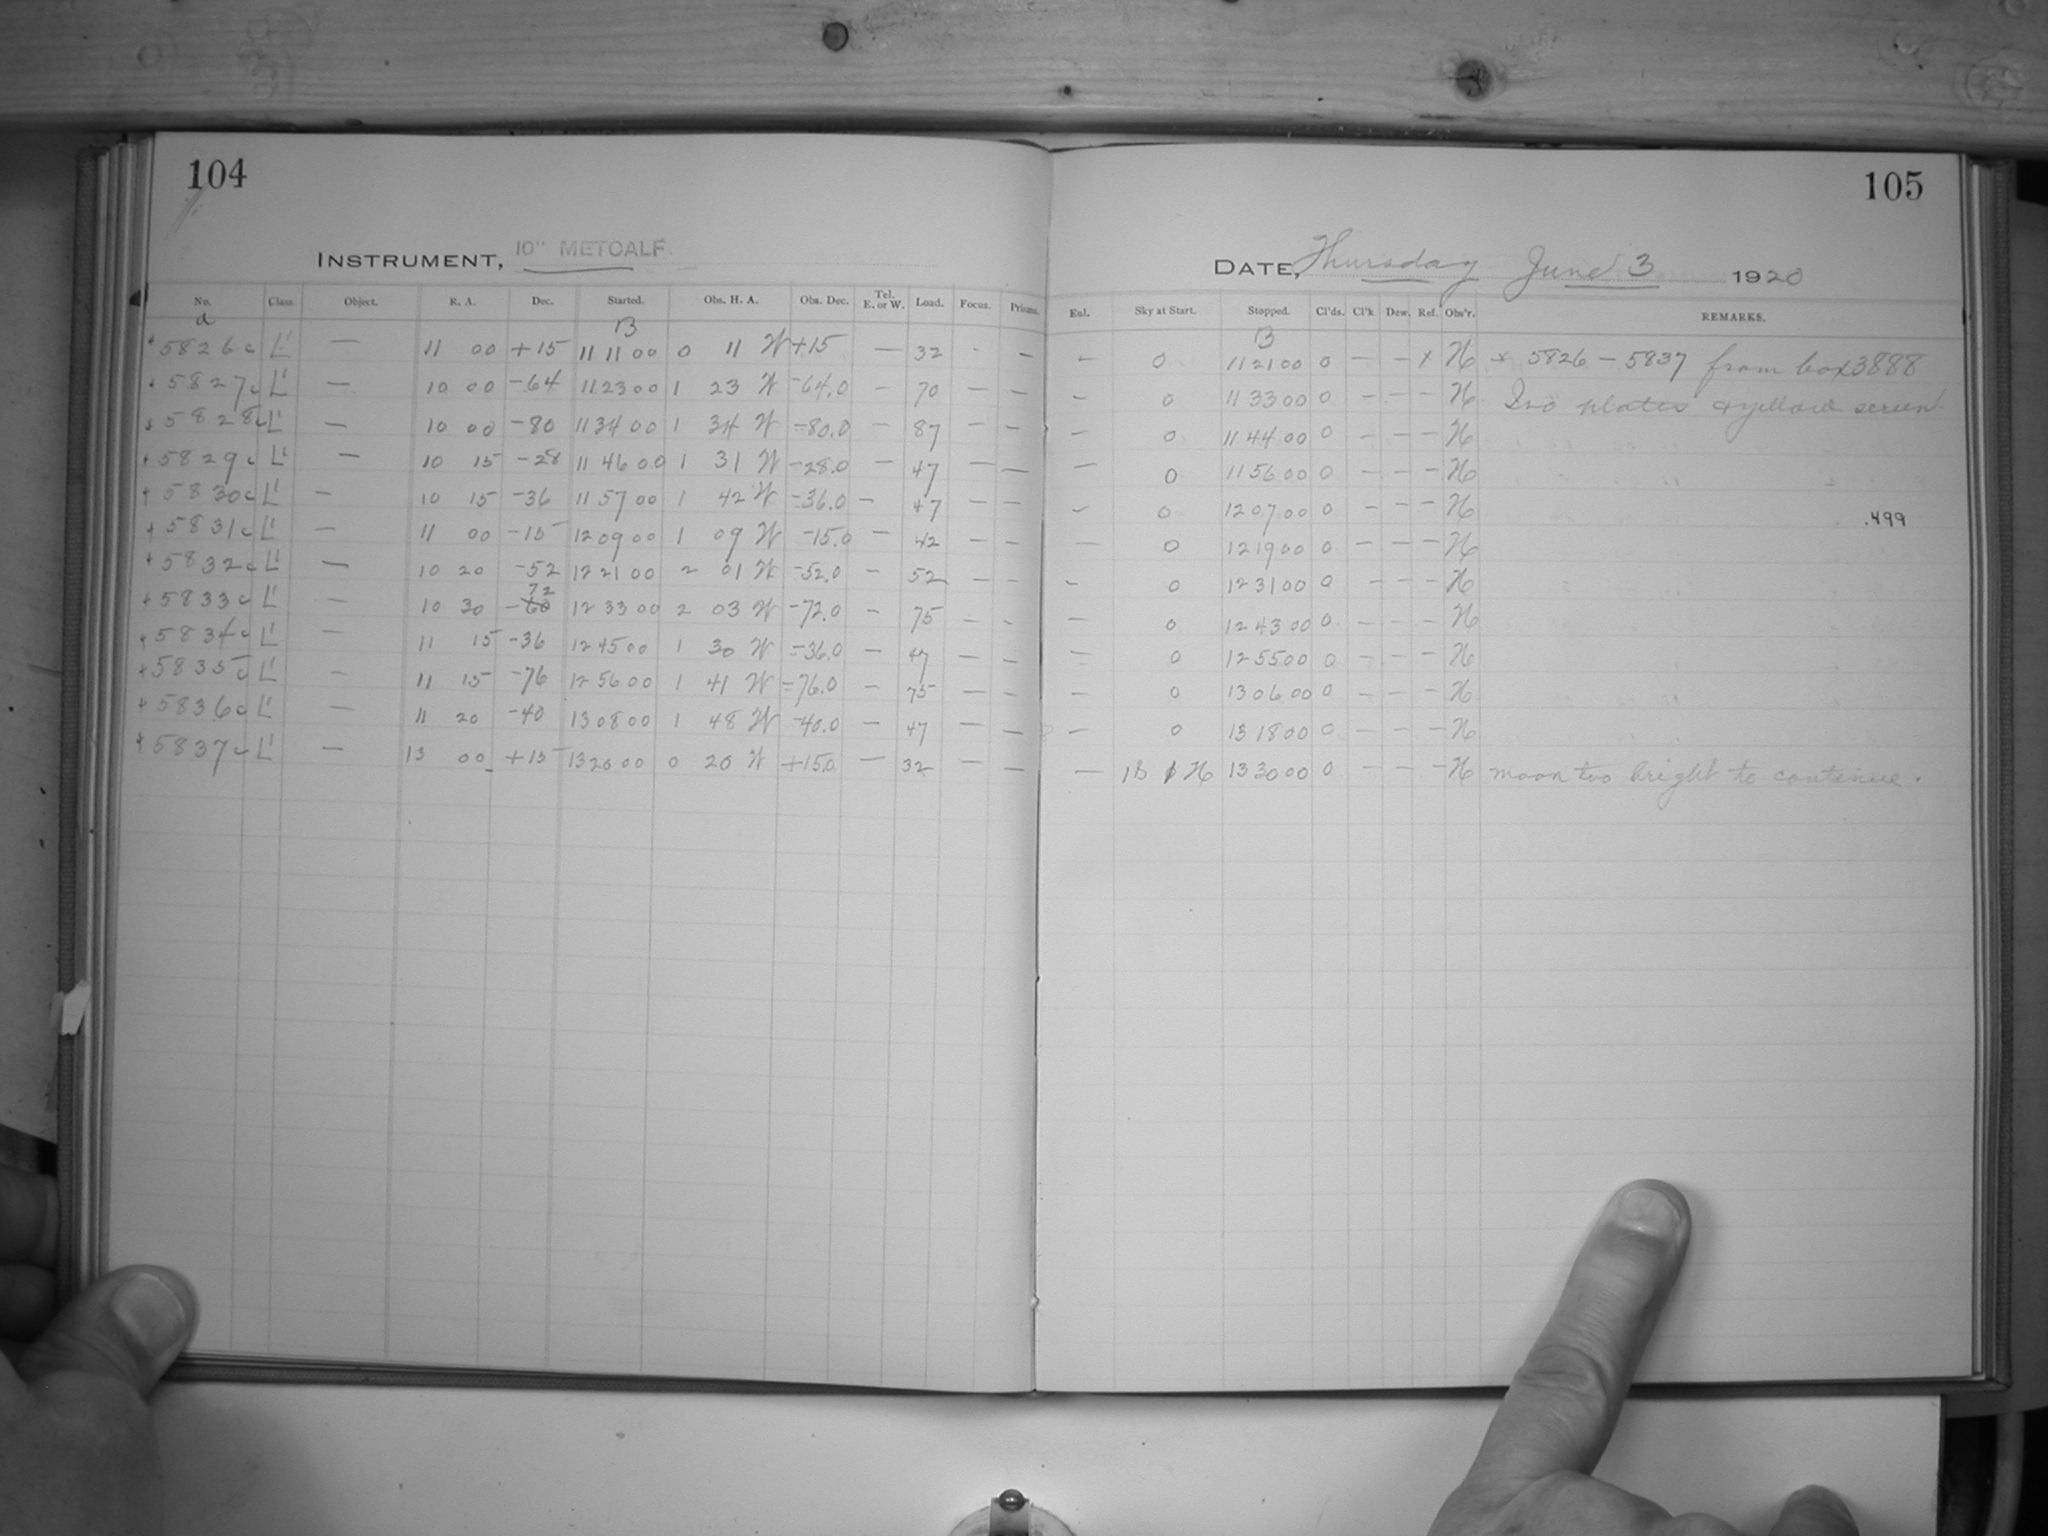 104
INSTRUMENT, 10" METCALF
No. Class. Object. R. A. Dec. Started. Obs. H. A. Obs. Dec. Tel. E. or W. Load. Focus. Prisms.
a B
+ 5826 c L' — 11 00 +15 11 11 00 0 11 W +15 — 32 - —
+ 5827 c L' — 10 00 -64 11 23 00 1 23 W -64.0 — 70 — —
+ 5828 c L' — 10 00 -80 11 34 00 1 34 W -80.0 — 87 — —
+ 5829 c L' — 10 15 -28 11 46 00 1 31 W -28.0 — 47 — —
+ 5830 c L' — 10 15 -36 11 57 00 1 42 W -36.0 — 47 — —
+ 5831 c L' — 11 00 -15 12 09 00 1 09 W -15.0 — 42 — —
+ 5832 c L' — 10 20 -52 12 21 00 2 01 W -52.0 — 52 — —
+ 5833 c L' — 10 30 -60 72 12 33 00 2 03 W -72.0 — 75 — —
+ 5834 c L' — 11 15 -36 12 45 00 1 30 W -36.0 — 47 — —
+ 5835 c L' — 11 15 -76 12 56 00 1 41 W -76.0 — 75 — —
+ 5836 c L' — 11 20 -40 13 08 00 1 48 W -40.0 — 47 — —
+ 5837 c L' — 13 00 +15 13 20 00 0 20 W +15.0 — 32 — —
105
DATE, Thursday June 3 1920
Enl. Sky at Start. Stopped. Cl'ds. Cl'k. Dew. Ref. Obs'r. REMARKS.
B
— 0 11 21 00 0 — — x H x 5826 — 5837 from box 3888
— 0 11 33 00 0 — — — H Iso plates & yellow screen.
— 0 11 44 00 0 — — — H
— 0 11 56 00 0 — — — H
— 0 12 07 00 0 — — — H
.499
— 0 12 19 00 0 — — — H
— 0 12 31 00 0 — — — H
— 0 12 43 00 0 — — — H
— 0 12 55 00 0 — — — H
— 0 13 06 00 0 — — — H
— 0 13 18 00 0 — — — H
— H 13 30 00 0 — — — H moon too bright to continue.